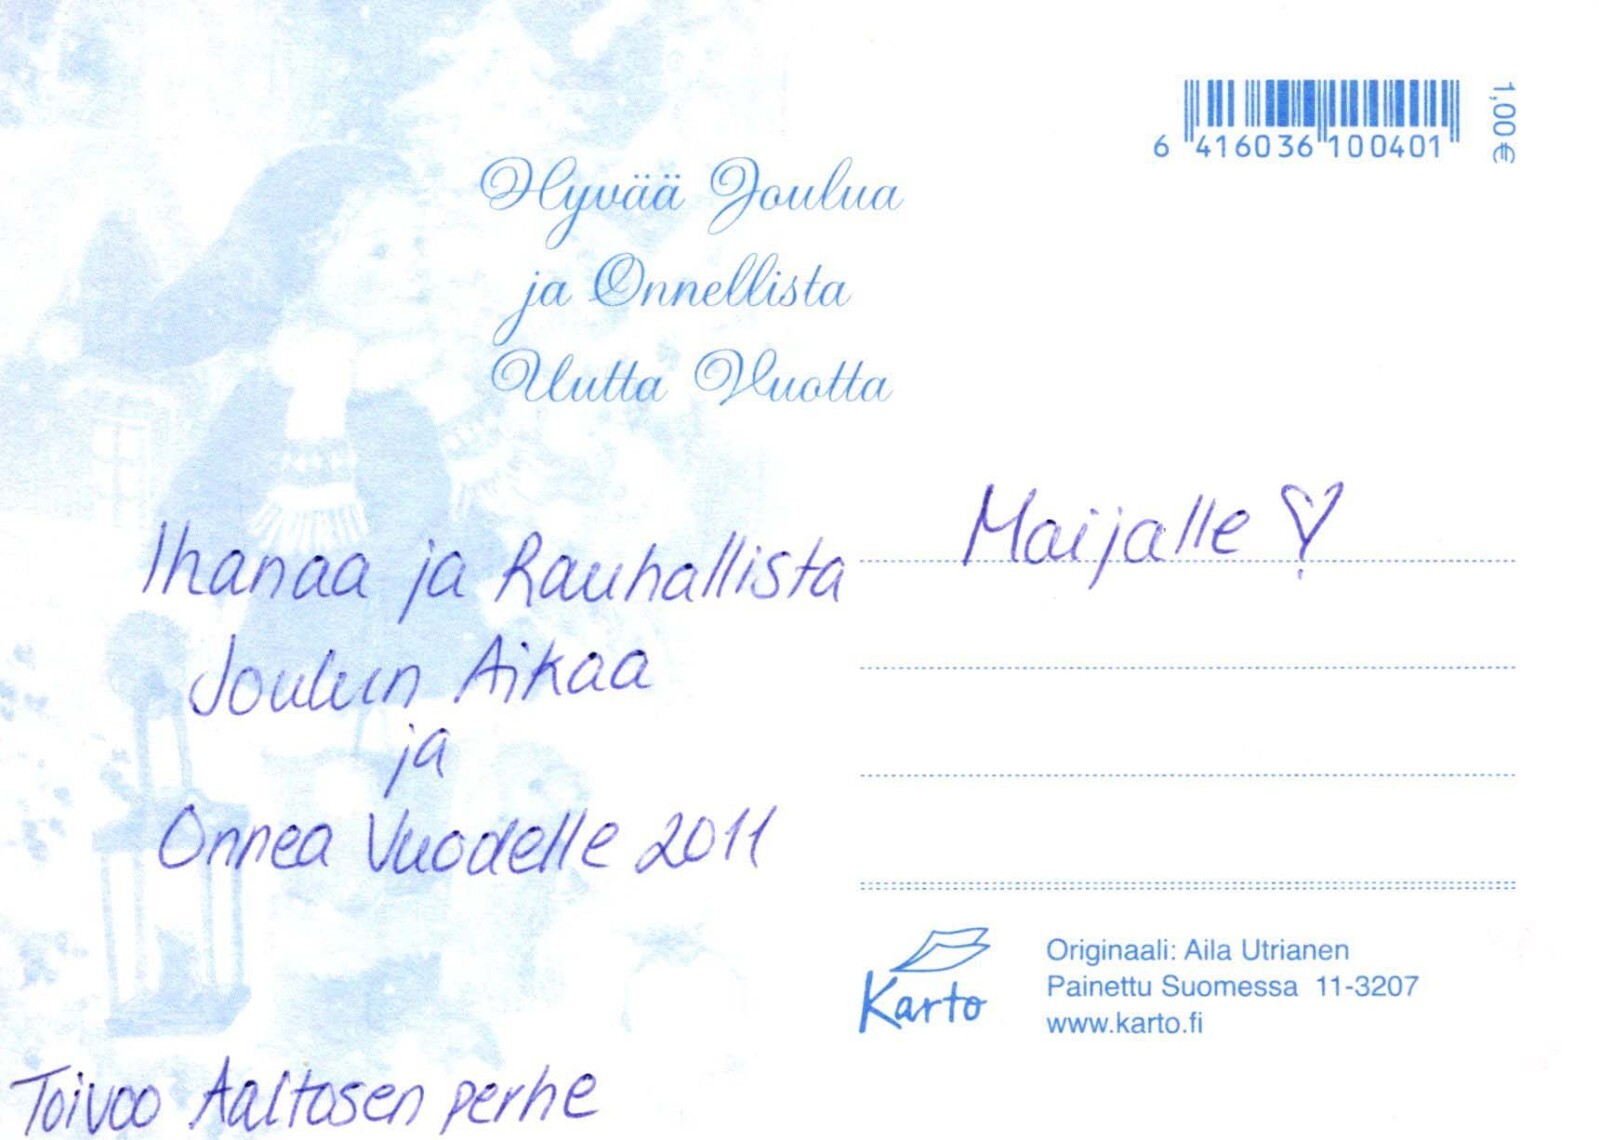 6 416036 100401
1,00 €
Hyvää Joulua
ja Onnellista
Uutta Vuotta
Maijalle ♡
Ihanaa ja Rauhallista
Joulun Aikaa
ja
Onnea Vuodelle 2011
Toivoo Aaltosen perhe
Karto
Originaali: Aila Utrianen
Painettu Suomessa 11-3207
www.karto.fi